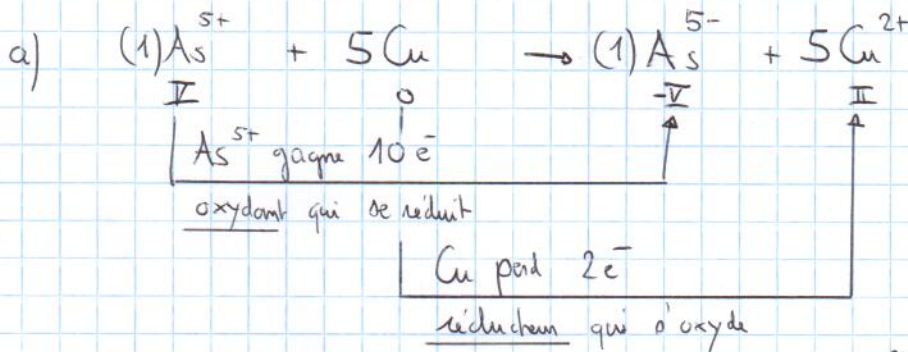 a) (1)As⁵⁺ + 5Cu → (1)As⁵⁻ + 5Cu²⁺
V 0 -V II
As⁵⁺ gagne 10 e⁻
oxydant qui se réduit
Cu perd 2e⁻
réducteur qui s'oxyde